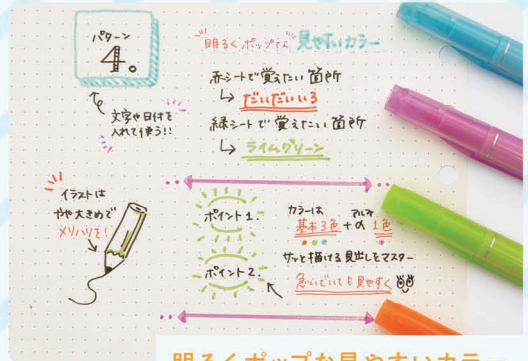 パターン
4。
文字や日付を
入れて使う!!
明るくポップな 見やすいカラー
赤シートで覚えたい箇所
↳ だいだいいろ
緑シートで覚えたい箇所
↳ ライムグリーン
イラストは
やや大きめで
メリハリを!
ポイント1.
カラーは
基本3色+αの1色
プルス
ポイント2.
サッと描ける見出しをマスター
急いでいても見やすく
明るくポップな見やすいカラー